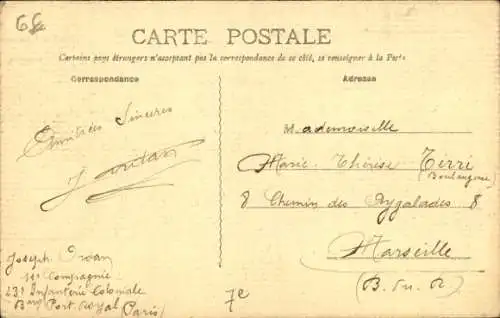 68
CARTE POSTALE
Certains pays étrangers n'acceptent pas la correspondance de ce côté, se renseigner à la Poste
Correspondance
Adresse
Amitiées Sincères
Mademoiselle
Marie-Thérèse Tirri
(Boulangerie)
8 Chemin des Aygalades 8
Marseille
(B. du R)
Joseph
11e Compagnie
23e Infanterie Coloniale
Port Royal (Paris)
7e